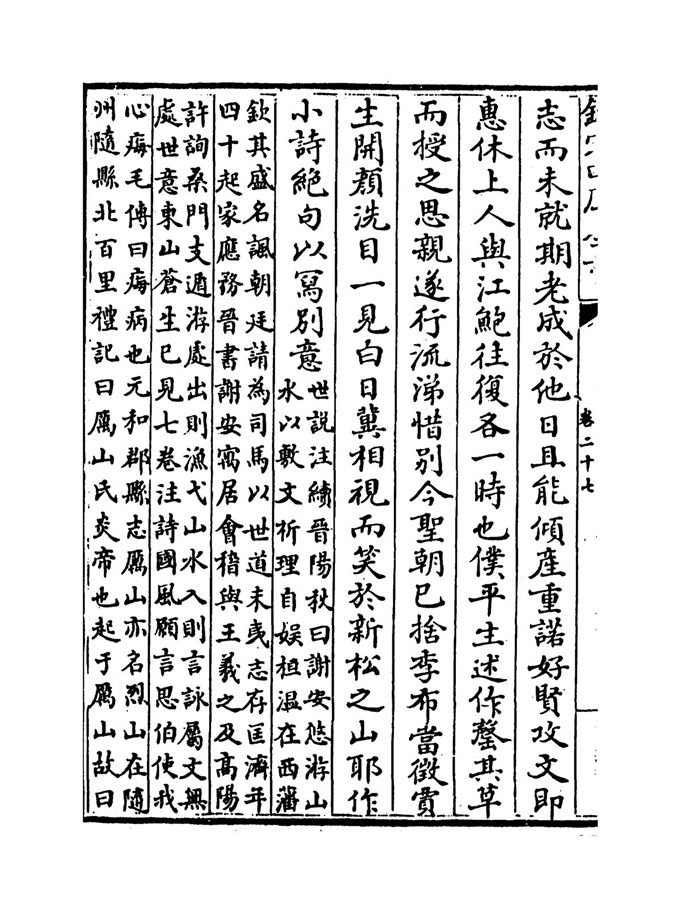 卷二十七
志而未就期老成於他日且能傾産重諾好賢攻文即
惠休上人與江鮑往復各一時也僕平生述作罄其草
而授之思親遂行流涕惜別今聖朝已捨季布當徵賈
生開顔洗目一見白日冀相視而笑於新松之山耶作
小詩絶句以寫別意
世説注續晉陽秋曰謝安悠游山
水以敷文析理自娱桓温在西藩
欽其盛名諷朝廷請為司馬以世道未夷志存匡濟年
四十起家應務晉書謝安寓居會稽與王羲之及髙陽
許詢桑門支遁游處出則漁弋山水入則言詠屬文無
處世意東山蒼生已見七卷注詩國風願言思伯使我
心痗毛傳曰痗病也元和郡縣志厲山亦名烈山在隨
州隨縣北百里禮記曰厲山氏炎帝也起于厲山故曰